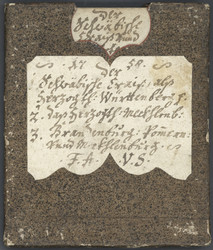 der
Schwäbische
Kraiß und
37. 38.
Der
Schwäbische Craiß, alß
Herzogth: Württenberg f.
2. daß Herzogth Mecklenb:
3. Brandenburg. Pom̄ern
und Mecklenburg.
F. A. V. S.